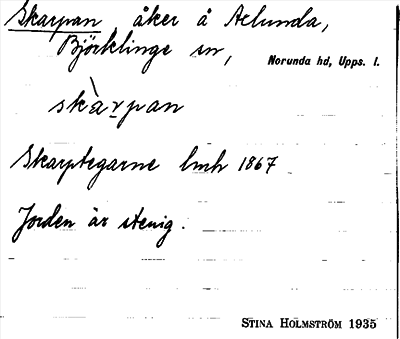 Skarpan åker å Aelunda,
Björklinge sn, Norunda hd, Upps. l.
skàrpan
Skarptegarne lmh 1867
Jorden är stenig.
STINA HOLMSTRÖM 1935